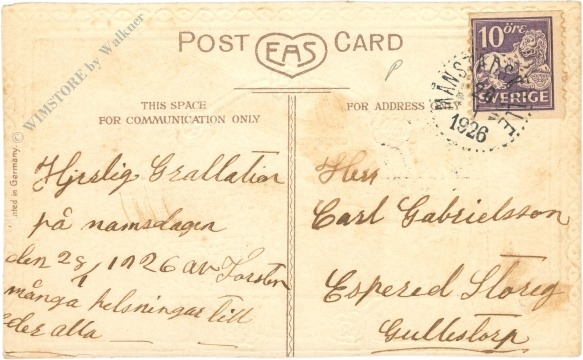 POST EAS CARD
10 ÖRE
SVERIGE
MÅNSTADSKULLE
1926
THIS SPACE
FOR COMMUNICATION ONLY
FOR ADDRESS ONLY
© WIMSTORE by Walkner
nted in Germany.
Hjerlig Grallation
på namsdagen
den 28/1 1926 av Torsten
många helsningar till
eder alla
Herr
Carl Gabrielsson
Espered Storeg
Gullestorp
P